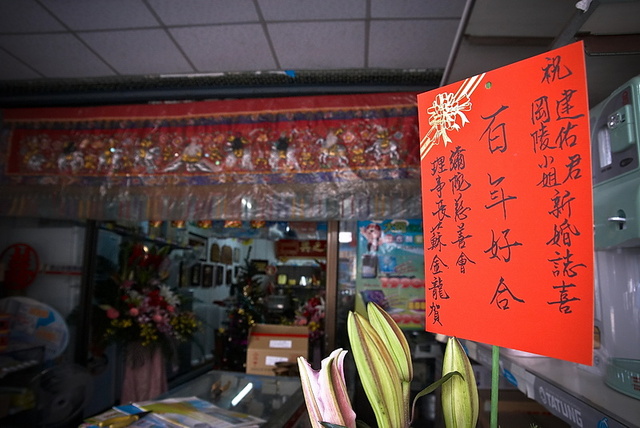 祝
建佑君
岡陵小姐
新婚誌喜
百年好合
彌陀慈善會
理事長蘇金龍賀
TATUNG